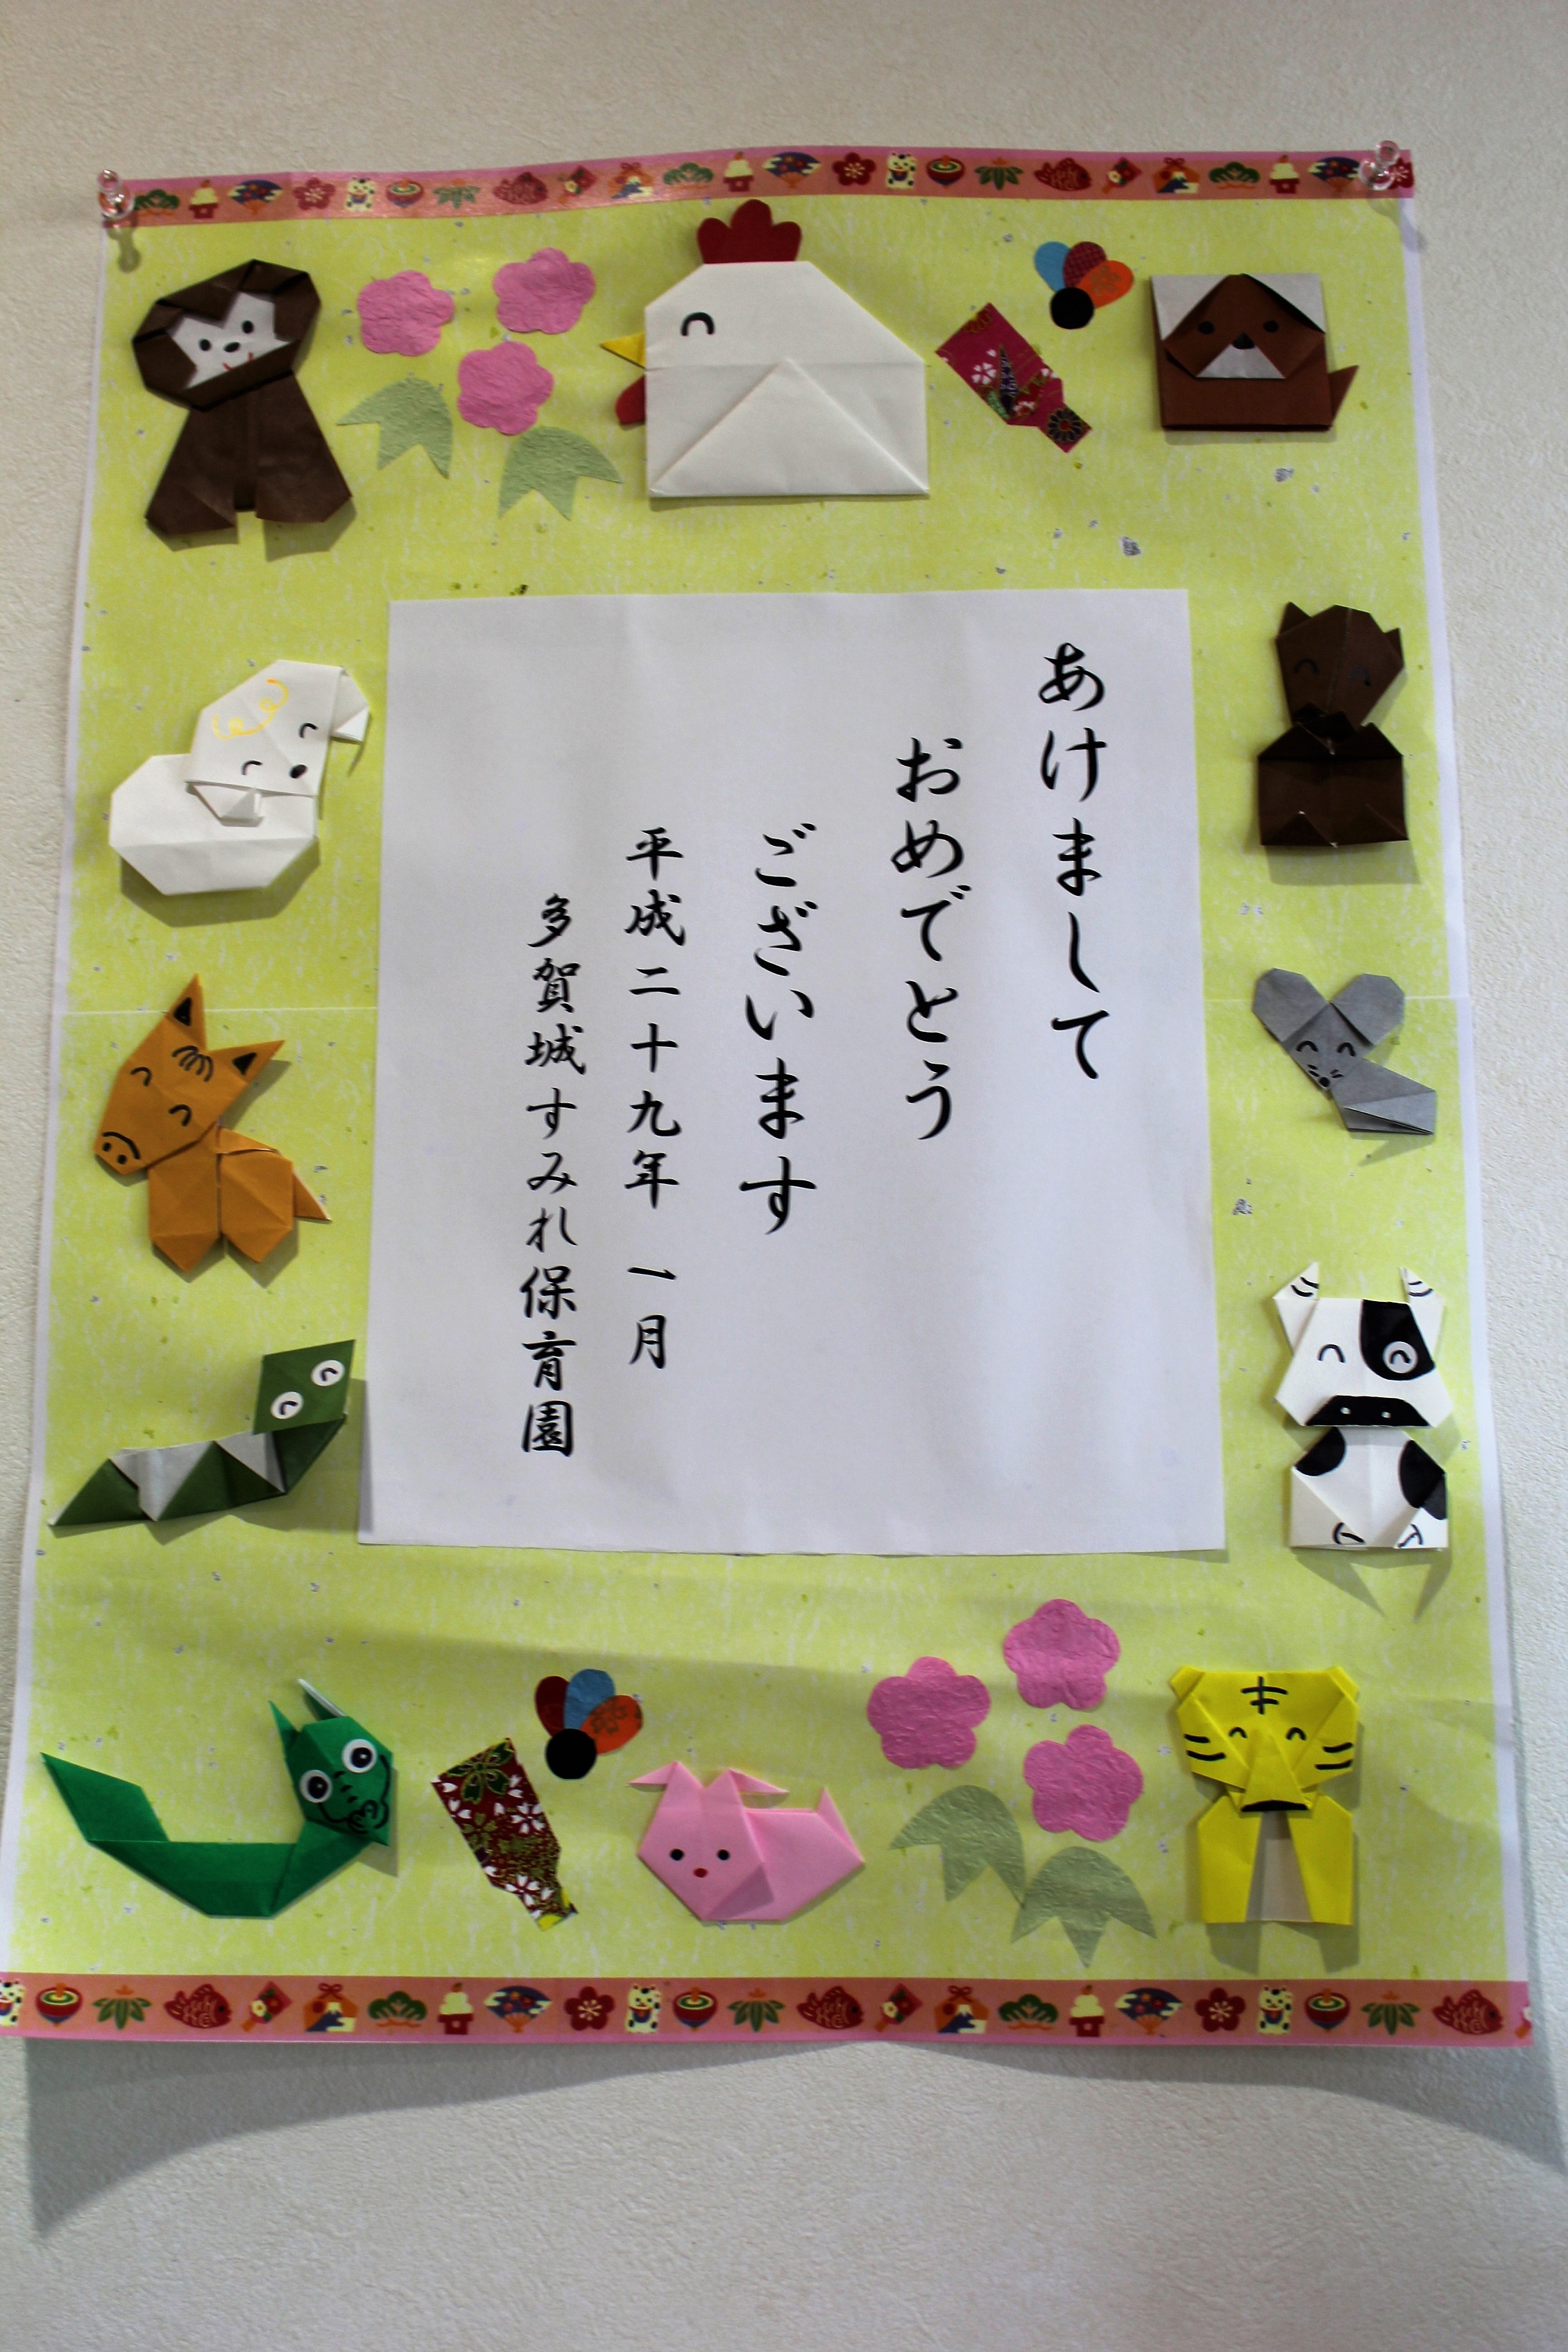 あけまして
おめでとう
ございます
平成二十九年 一月
多賀城すみれ保育園